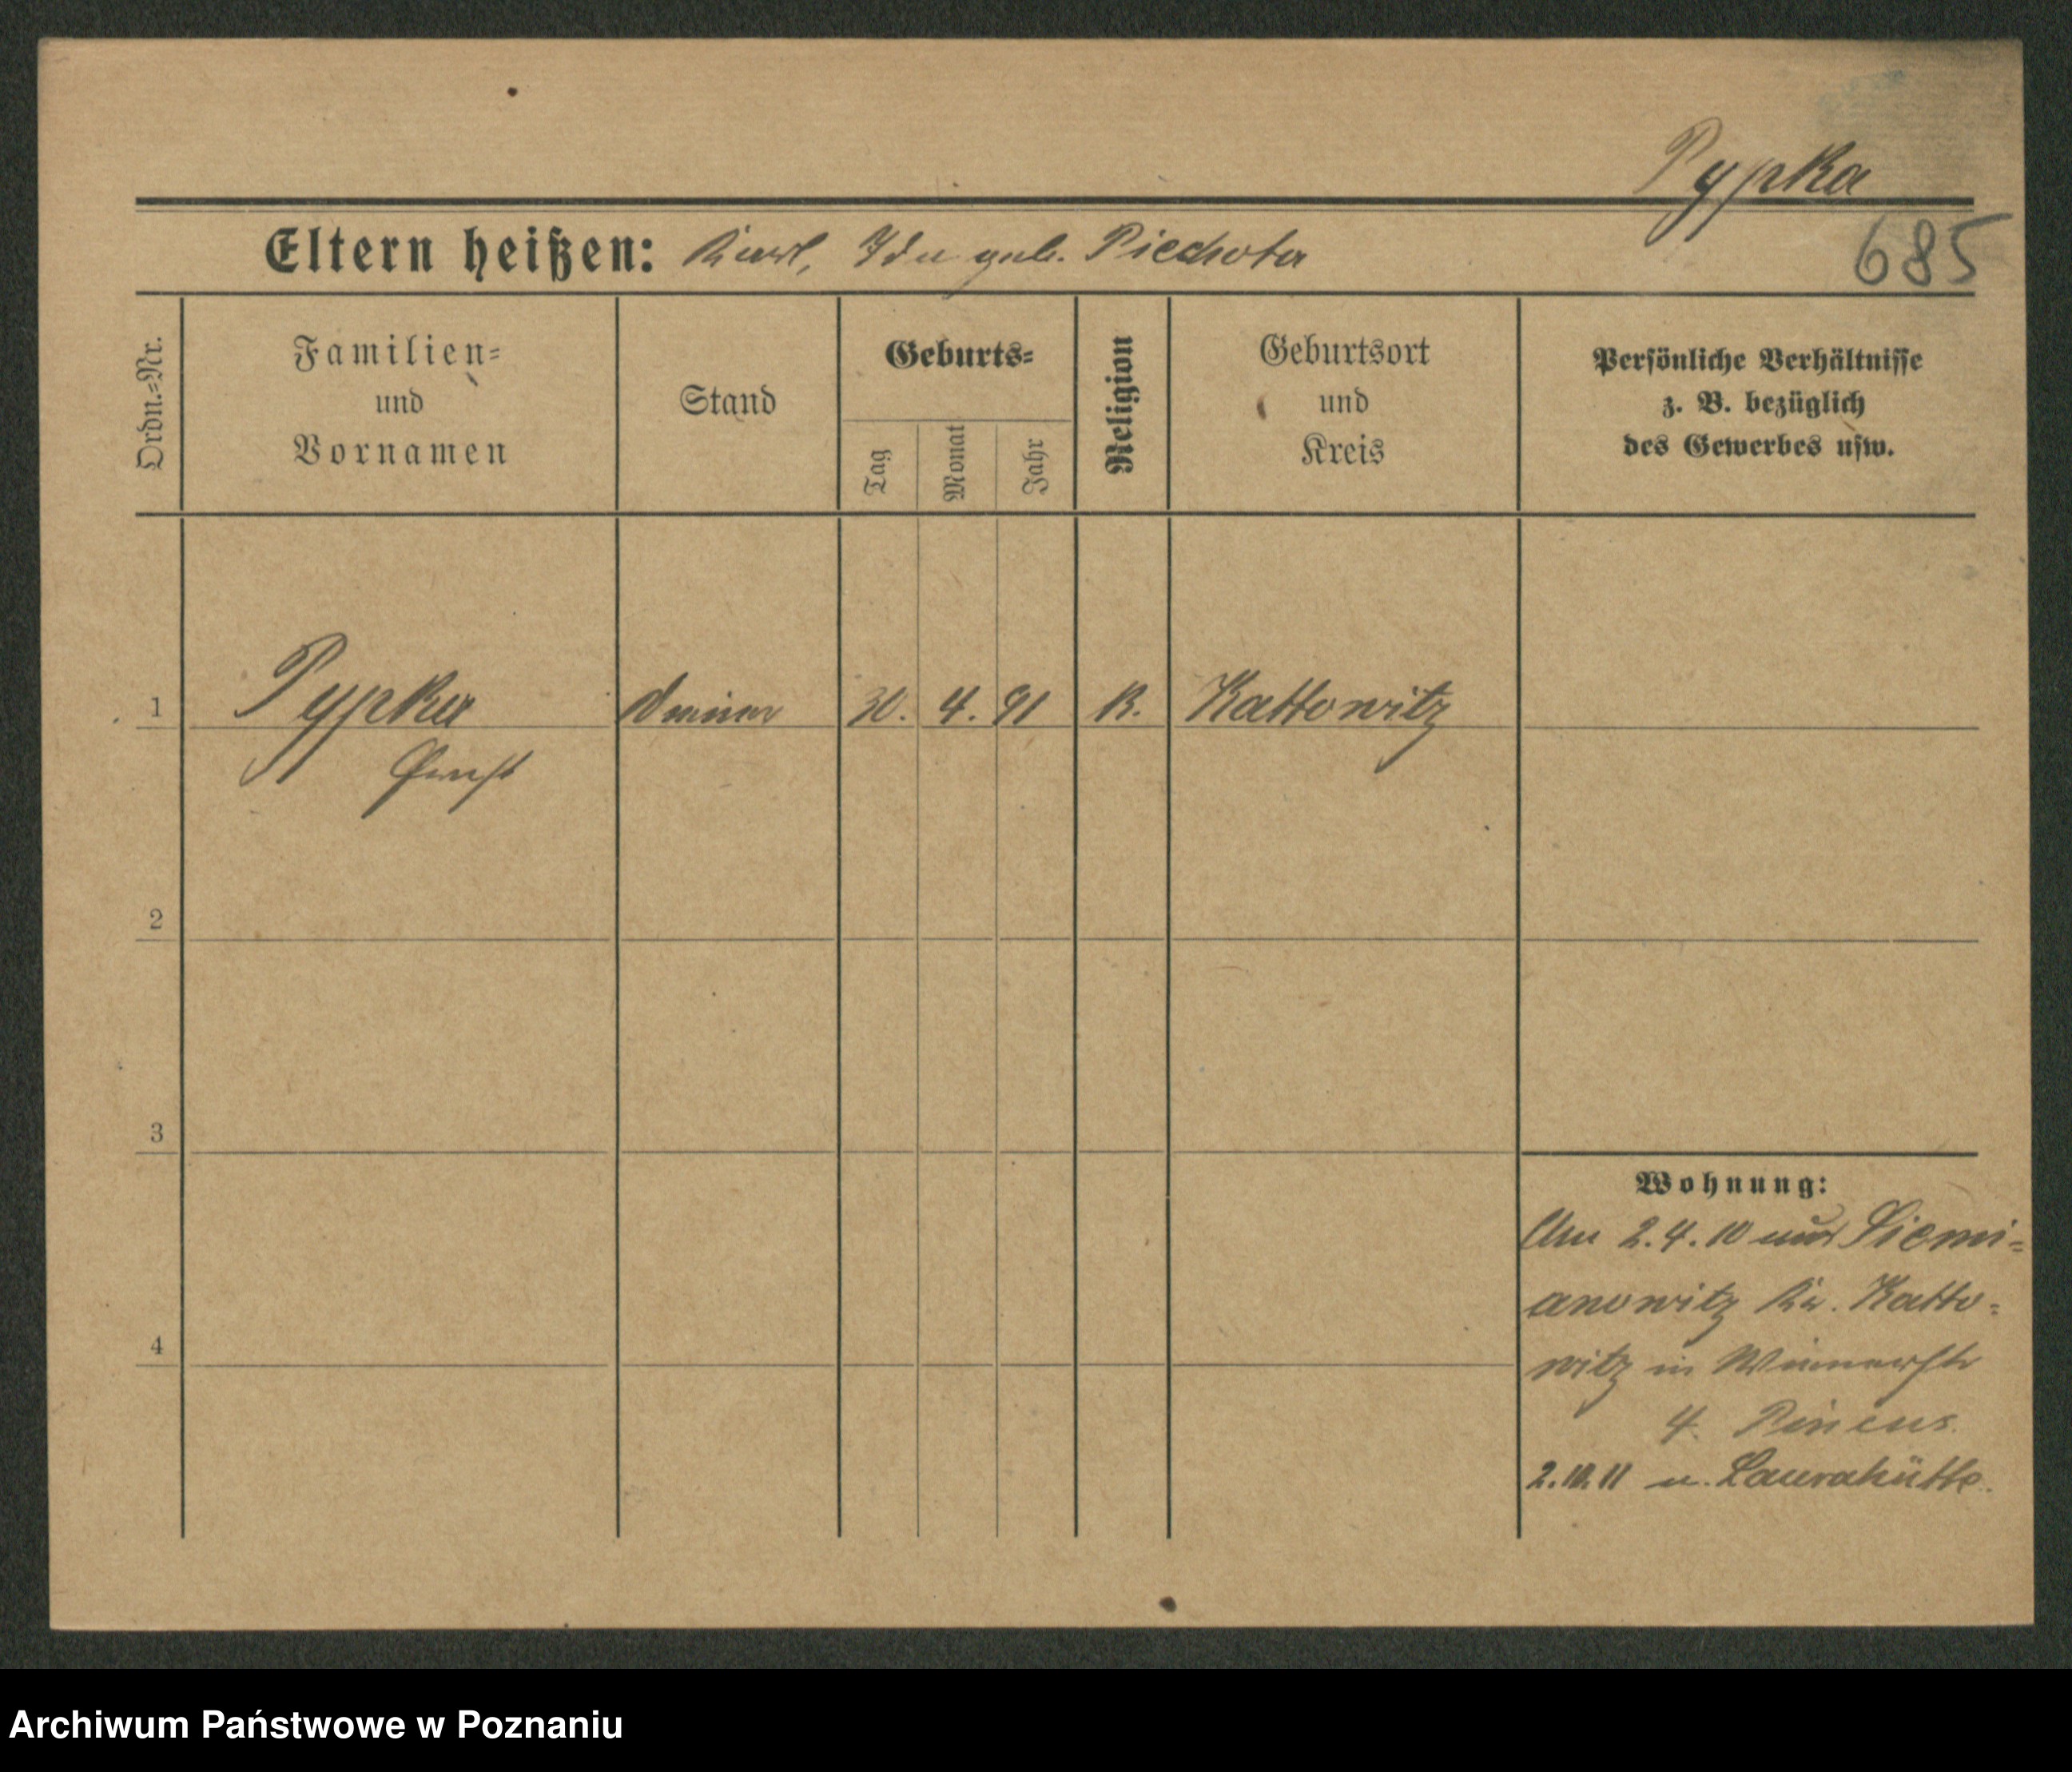 Pypka
685
Eltern heißen: Karl, Ida geb. Piechota
Ordn.-Nr.
Familien-
und
Vornamen
Stand
Geburts-
Tag
Monat
Jahr
Religion
Geburtsort
und
Kreis
Persönliche Verhältnisse
z. B. bezüglich
des Gewerbes usw.
1 Pypka 30. 4. 91 K. Kattowitz
Ernst
2
3
4
Wohnung:
Am 2.4.10 aus Siemi-
anowitz Kr. Katto-
witz in
4. Pincus
2.10.11 n. Laurahütte.
Archiwum Państwowe w Poznaniu